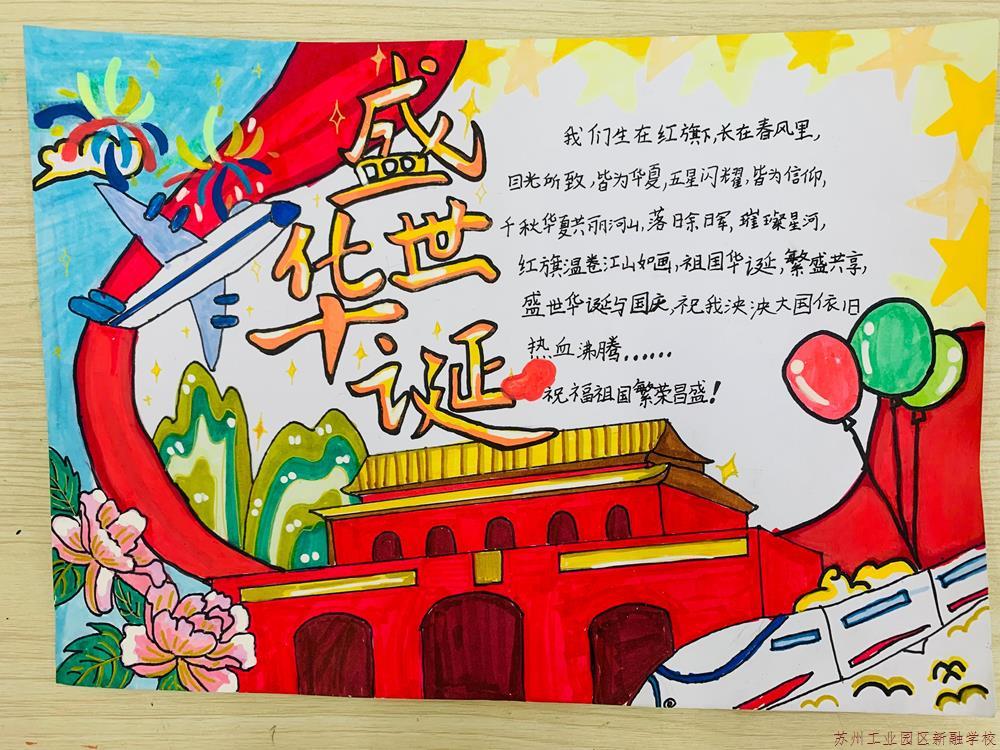 盛世
华诞
我们生在红旗下,长在春风里,
目光所致,皆为华夏,五星闪耀,皆为信仰,
千秋华夏共丽河山,落日余晖,璀璨星河,
红旗温卷江山如画,祖国华诞,繁盛共享,
盛世华诞与国庆,祝我泱泱大国依旧
热血沸腾......
祝福祖国繁荣昌盛!
苏州工业园区新融学校